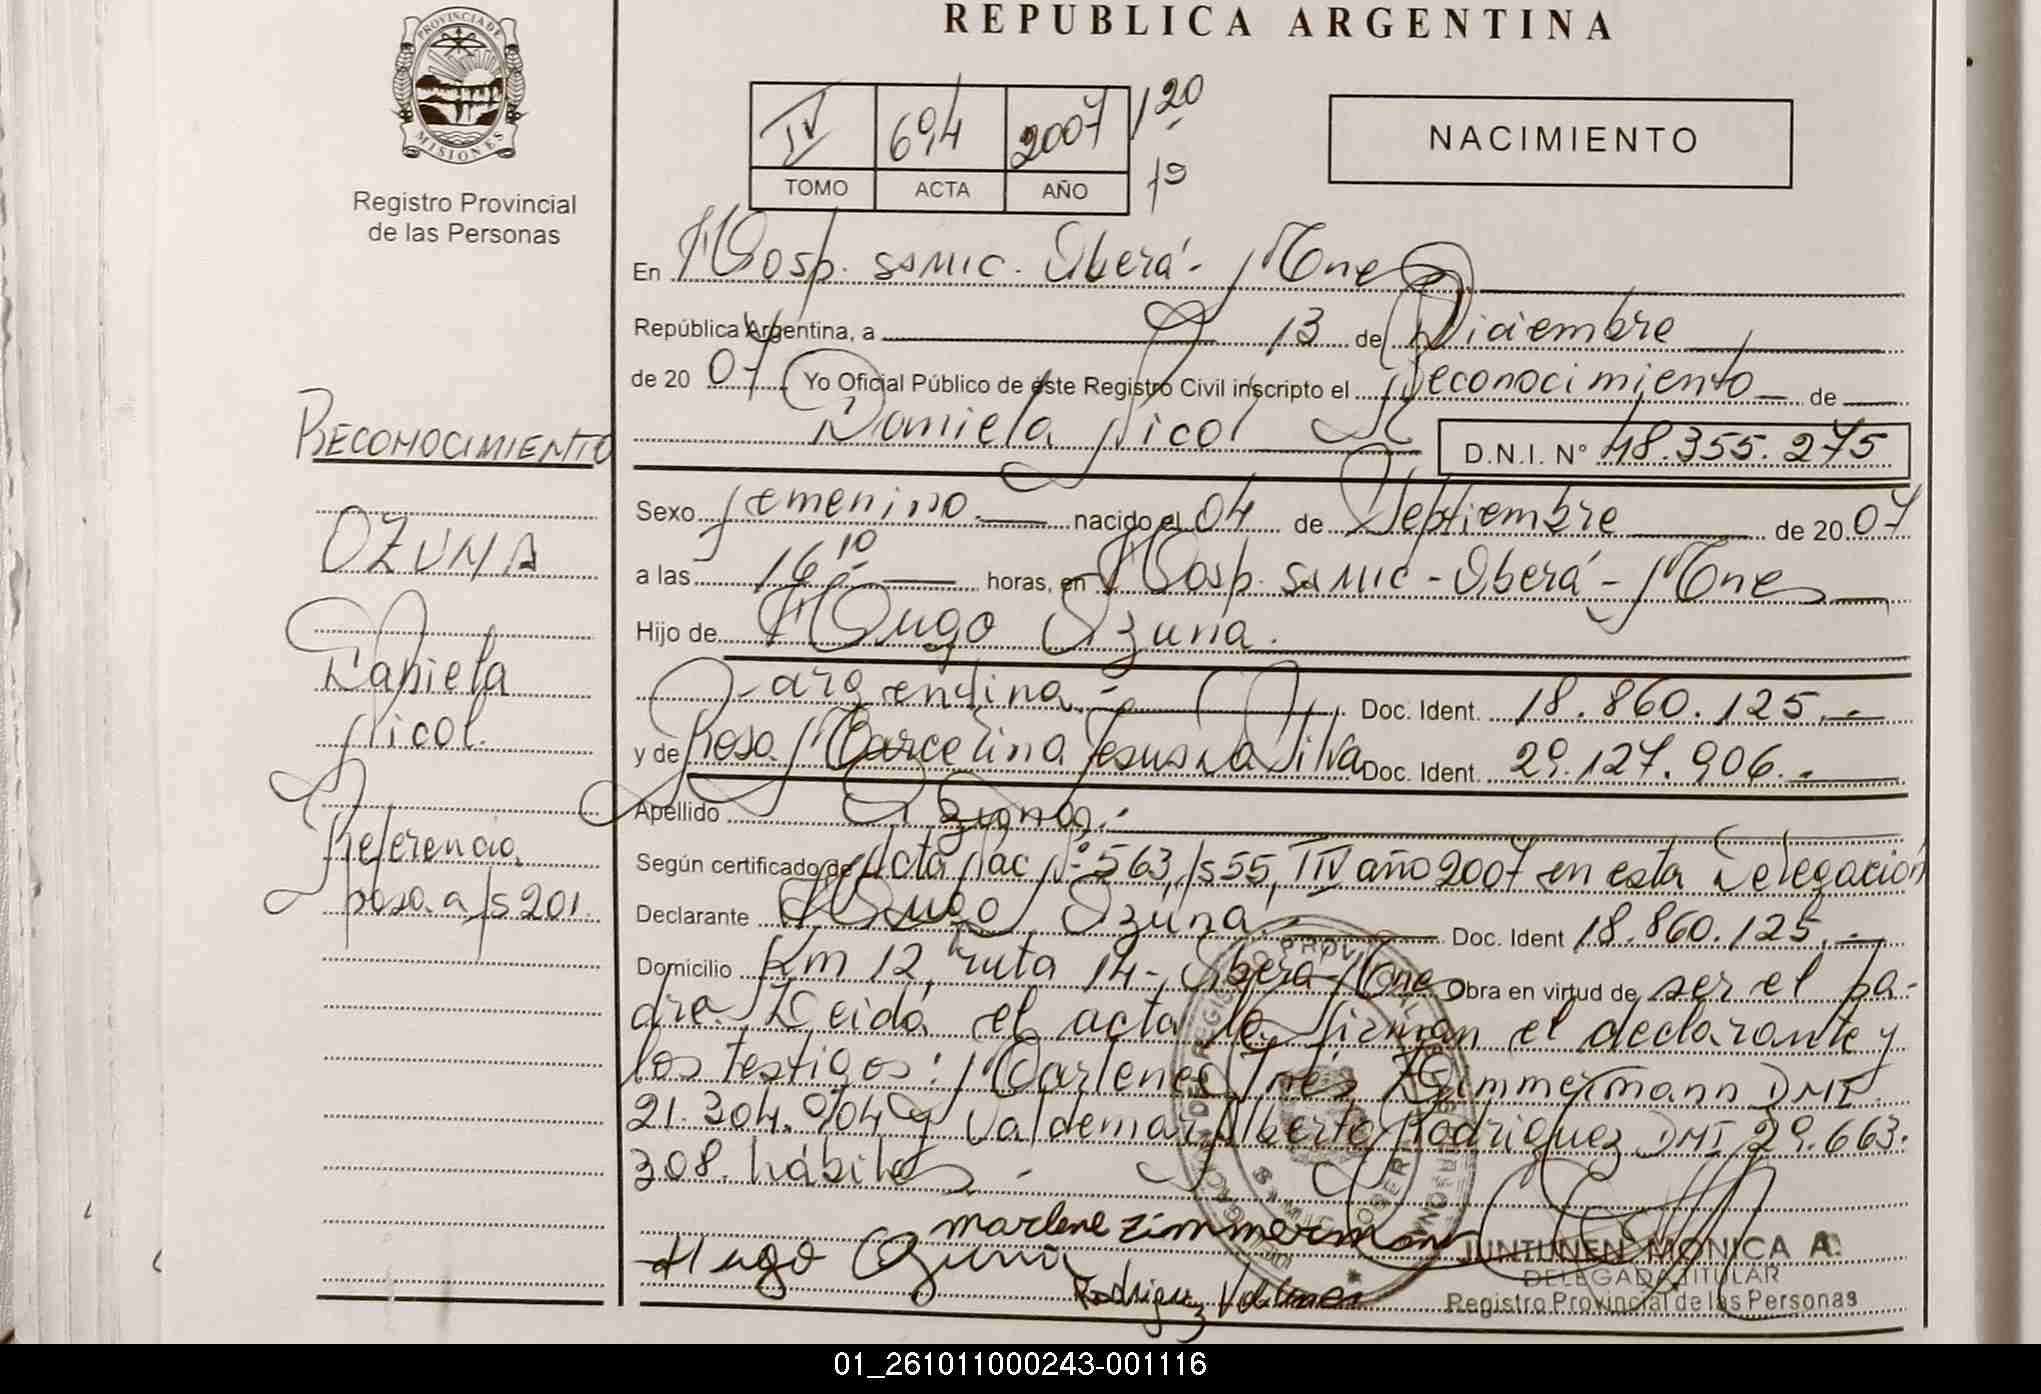 PROVINCIA DE
MISIONES
Registro Provincial
de las Personas
REPUBLICA ARGENTINA
IV 694 2007 120
TOMO ACTA AÑO
NACIMIENTO
En Hosp. SAMIC. Oberá - Mnes
República Argentina, a 13 de Diciembre
de 20 07 Yo Oficial Público de éste Registro Civil inscripto el Reconocimiento de
Daniela Nicol D.N.I. N° 48.355.275
RECONOCIMIENTO
OZUNA
Daniela
Nicol.
Referencia
pasa a fs 201.
Sexo femenino. nacido el 04 de Septiembre de 20 07
a las 16 10 horas, en Hosp. SAMIC - Oberá - Mnes
Hijo de Hugo Ozuna.
argentina.- Doc. Ident. 18.860.125.-
y de Rosa Marcelina Jesus Da Silva Doc. Ident. 29.127.906.-
Apellido Ozuna.-
Según certificado de Acta Nac N° 563, fs 55, T IV año 2007 en esta Delegación
Declarante Hugo Ozuna.- Doc. Ident 18.860.125.-
Domicilio Km 12, ruta 14 - Oberá - Mnes Obra en virtud de ser el pa-
dre. Leida el acta la firman el declarante y
los testigos: Marlene Inés Zimmermann DNI
21.304.904 y Valdemar Alberto Rodriguez DNI 29.663.
308. hábiles.-
marlene zimmermann
Hugo Ozuna
Rodriguez Valdemar
JUNTUNEN MONICA A.
DELEGADA TITULAR
Registro Provincial de las Personas
01_261011000243-001116